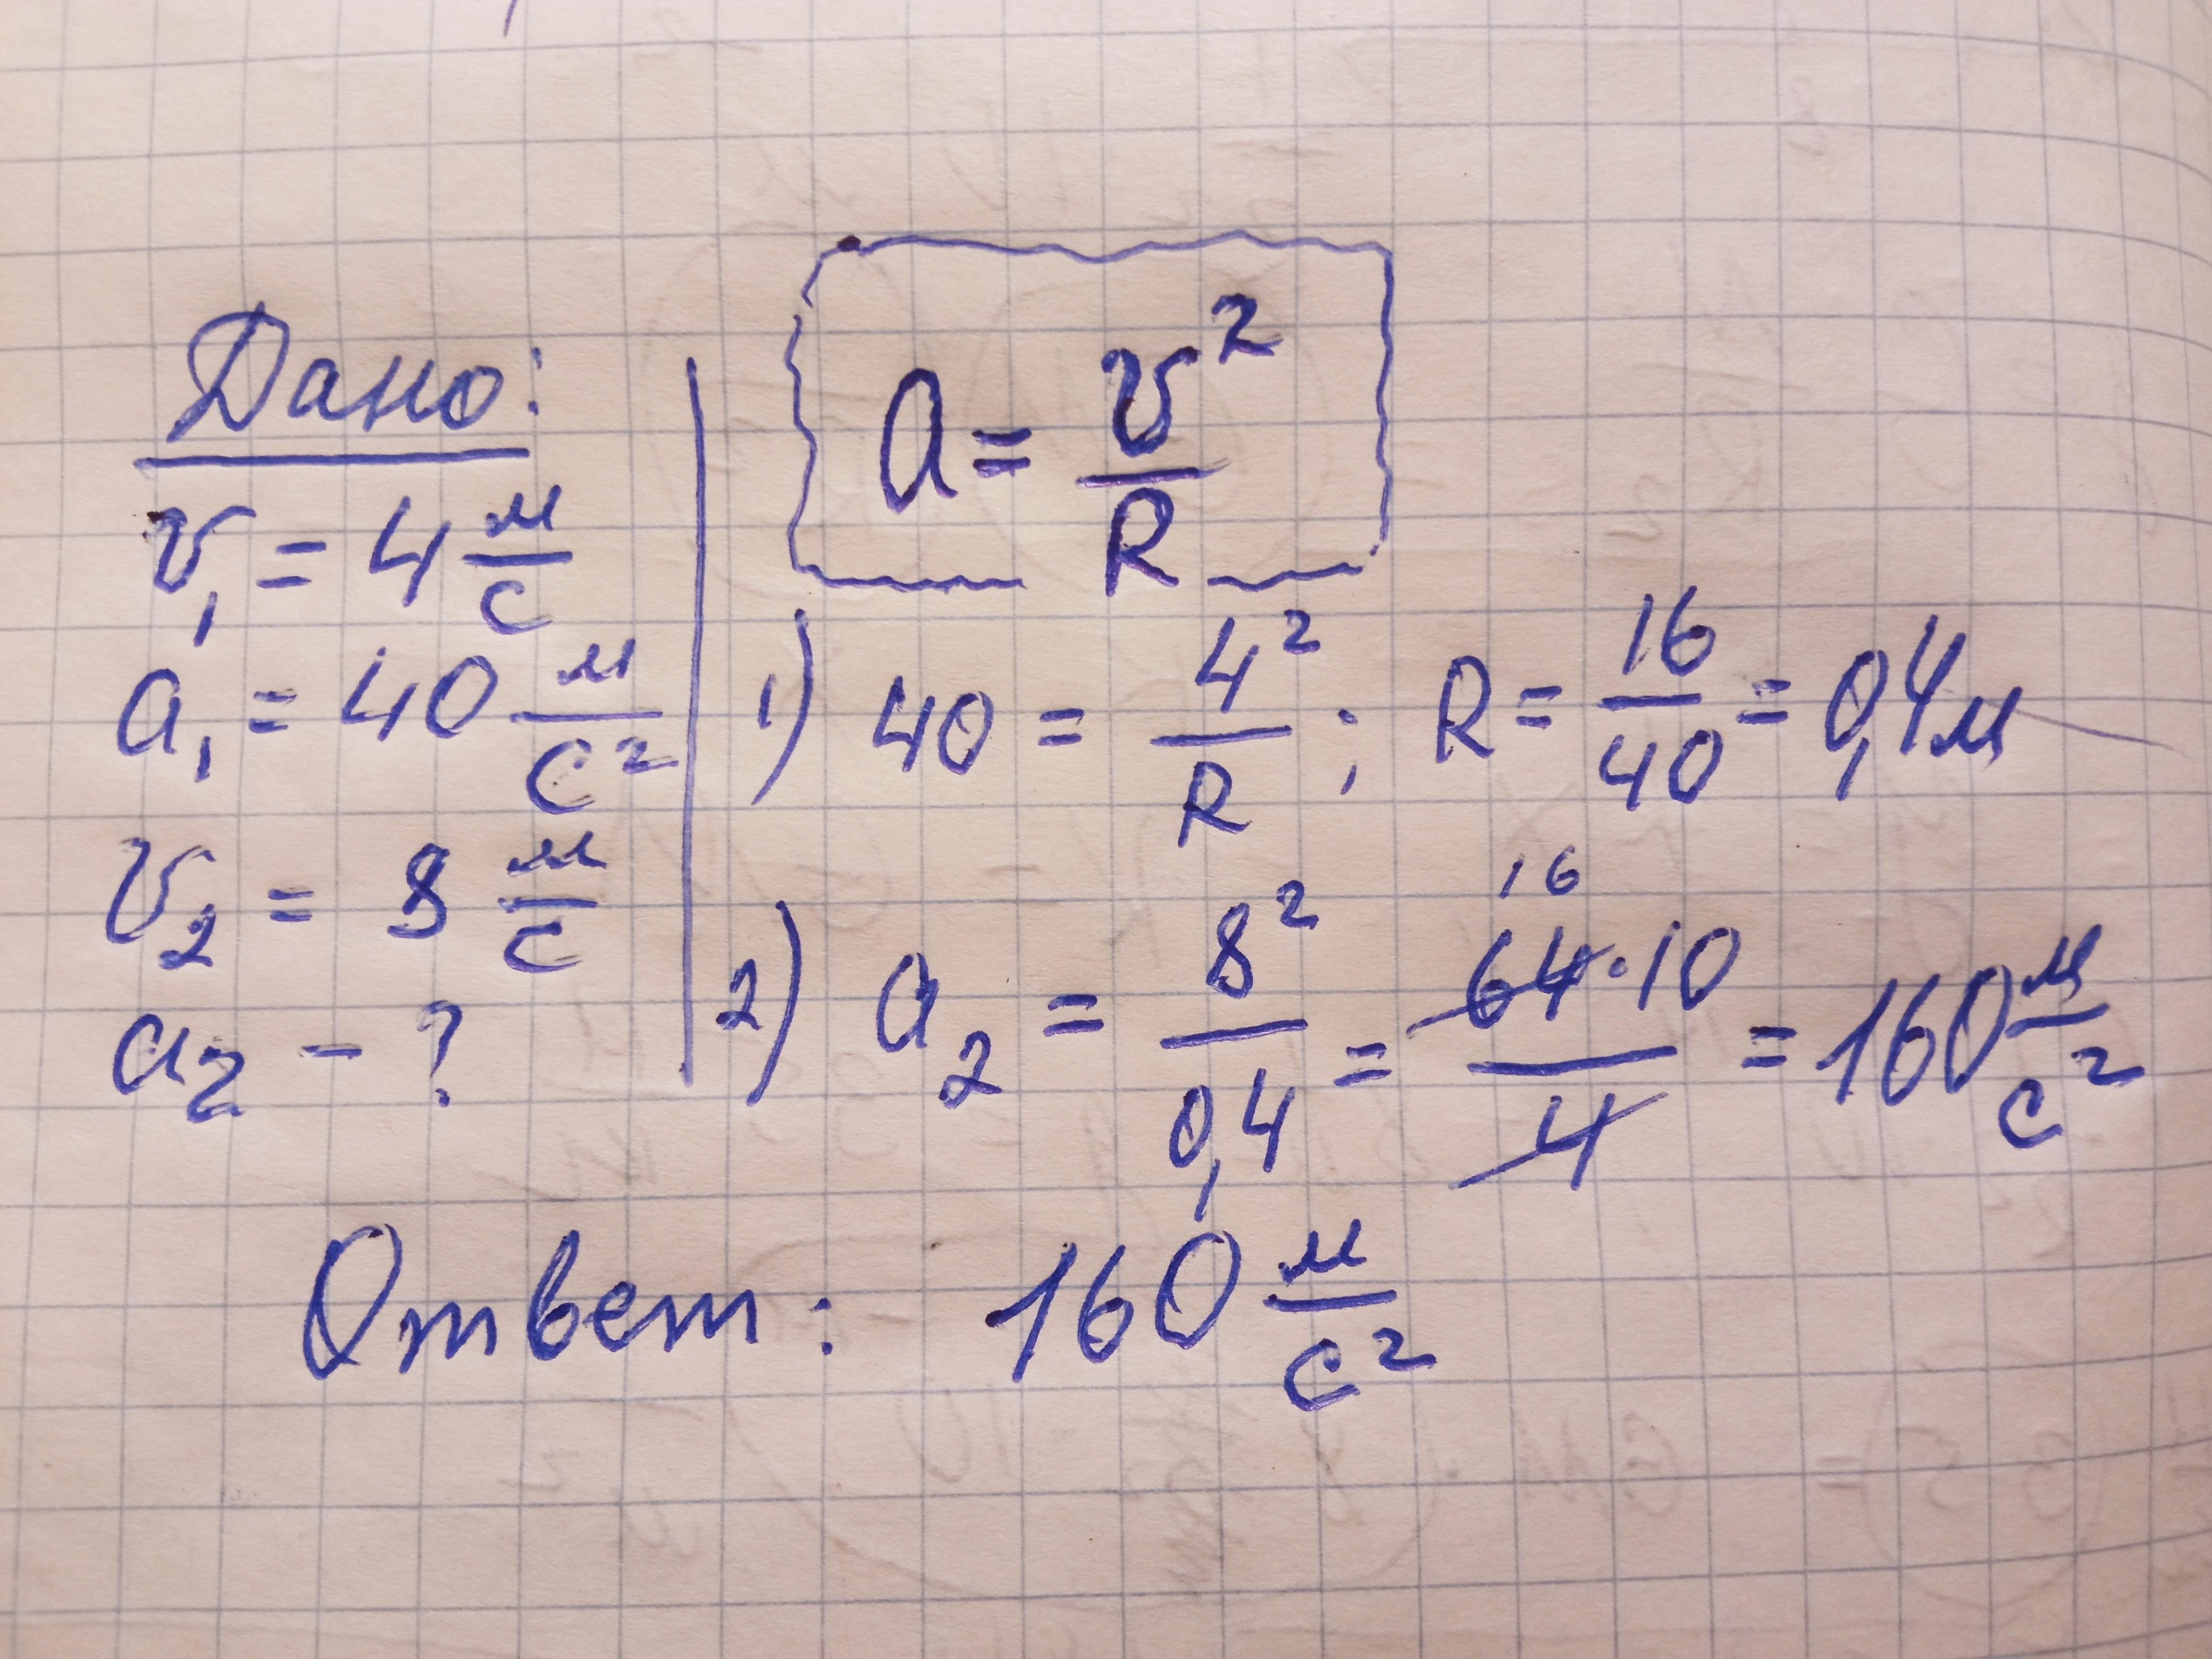 Дано:
v₁ = 4 м/с
a₁ = 40 м/с²
v₂ = 8 м/с
a₂ - ?
a = v²/R
1) 40 = 4²/R ; R = 16/40 = 0,4м
16
2) a₂ = 8²/0,4 = 64·10/4 = 160 м/с²
Ответ: 160 м/с²